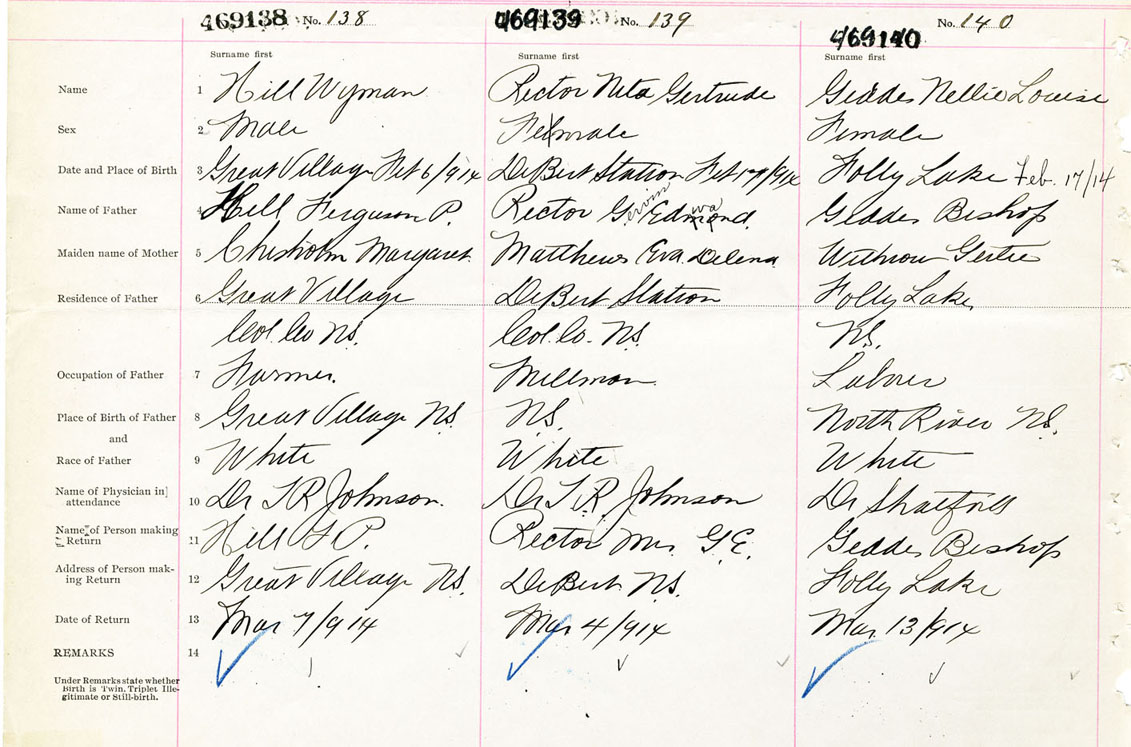 469138 No. 138 469139 No. 139 469140 No. 140
Surname first Surname first Surname first
Name 1 Hill Wyman Rector Neta Gertrude Geddes Nellie Louise
Sex 2 Male Female Female
Date and Place of Birth 3 Great Village Feb 6/914 DeBert Station Feb 17/914 Folly Lake Feb. 17/14
Name of Father 4 Hill Ferguson P. Rector G. ervin Edmond. wa Geddes Bishop
Maiden name of Mother 5 Chisholm Margaret. Matthews Eva Delena Withrow Gertie
Residence of Father 6 Great Village DeBert Station Folly Lake
Col. Co N.S. Col. Co. N.S. N.S.
Occupation of Father 7 Farmer. Millman. Labrer
Place of Birth of Father 8 Great Village N.S. N.S. North River N.S.
and
Race of Father 9 White White White
Name of Physician in
attendance 10 Dr T R Johnson. Dr T. R. Johnson Dr
Name of Person making
Return 11 Hill F P. Rector Mrs. G. E. Geddes Bishop
Address of Person mak-
ing Return 12 Great Village N.S. DeBert N.S. Folly Lake
Date of Return 13 Mar 7/914 Mar 4/914 Mar 13/914
REMARKS 14
Under Remarks state whether
Birth is Twin, Triplet Ille-
gitimate or Still-birth.